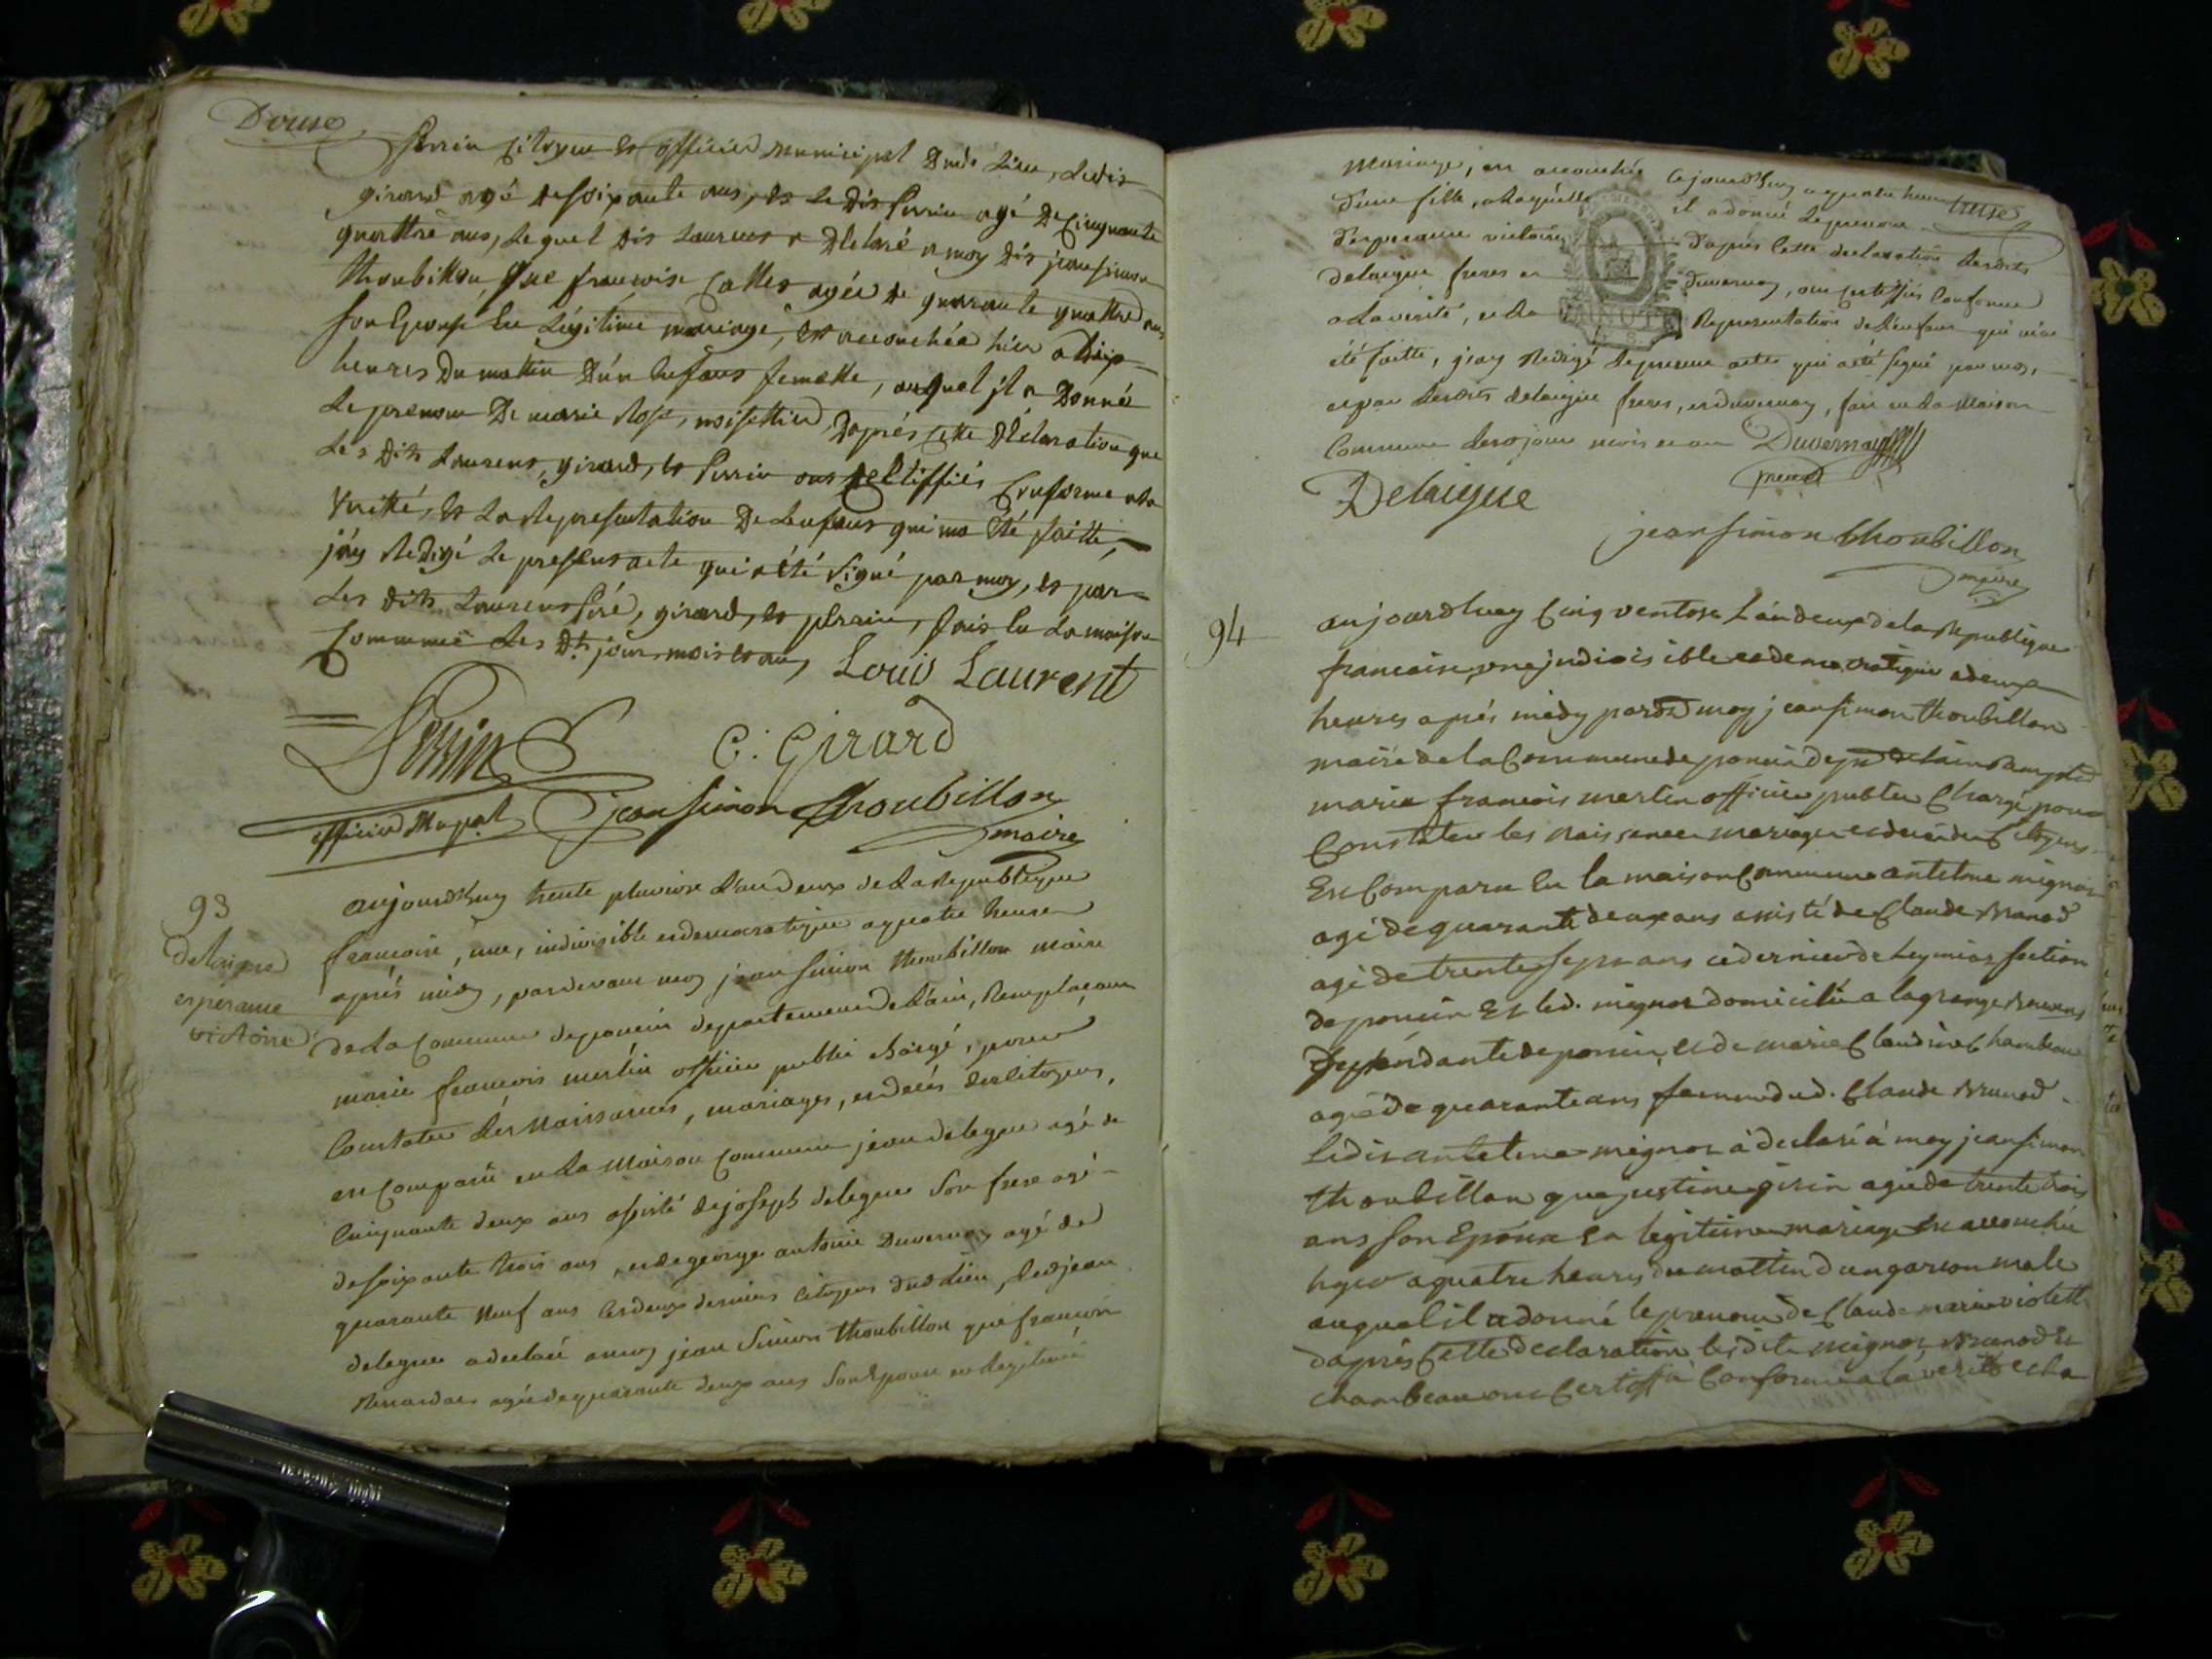 Douse
perrin Citoyen et officier municipal Dudt Lieu, Ledit
girard agé de soixante ans, et Le dit perrin agé De Cinquante
quattre ans, Lequel dit Laurens a Déclaré a moy dit jean simon
thoubillon, que francoise Collet agée de quarante quattre ans
son Epouse En Légitime mariage, est accouchéa hier a dix
heures Du mattin D'un Enfans femelle, auquel jl a Donné
Le prenom De marie Rose, noisettier, Daprés Cette Déclaration que
Les Dits Laurens, girard, et perrin ont Certiffiés Conforme a la
Veritté, et La Representation De Lenfans qui ma été faitte,
j'ay Redigé Le present acte qui a été signé par moy, et par
Les Dits Laurens peré, girard, et perrin, fait En La maison
Commune Les Dts jour, mois et an, Louis Laurent
Perrin C. Girard
officier Mupal jean simon thoubillon
maire
93
delaigue
esperance
victoire
aujourdhuy trente pluviose L'an deux de La Republique
francoise, une, indivisible et democratique a quatre heures
aprés midy, pardevant moy jean simon thoubillon maire
de La Commune de poncin departement de L'ain, Remplaçant
marie françois merlin officier public chargé, pour
Constater Les Naissances, mariages, et décés des Citoyens,
est Comparu en La Maison Commune jean delegue agé de
Cinquante deux ans assisté de joseph delegue son frere agé
de soixante trois ans, et de george antoine Duvernay agé de
quarante Neuf ans Les deux derniers Citoyens dudt Lieu, Led jean
delegue a declaré a moy jean simon thoubillon que francoise
agée de quarante deux ans son Epouse en Legitime
Mariage, est accouchée cejourdhuy a quatre heures treise
d'une fille, a laquelle il a donné Le prenom
d'esperance victoire, d'aprés Cette declaration Lesdits
delaigue freres et Duvernay, ont certiffiés Conforme
a La verité, et La Representation de L'enfant qui m'a
été faitte, j'ay Redigé Le present acte qui a été signé par moy,
et par Lesdits delaigue freres, et duvernay, fait en La Maison
Commune Lesd jour mois et an Duvernay
Delaigue
jean simon thoubillon
maire
94
aujourdhuy Cinq ventose L'an deux de la Republique
francaise, une jndivisible et democratique a deux
heures aprés midy pardt moy jean simon thoubillon
maire de la Commune de poncin dept de lain Ramplt
marie francois merlin officier public Chargé pour
Constater les Naissances mariages et deces des Citoyens
Est Comparu En la maison Commune antelme mignot
agé de quarante deux ans assisté de Claude Brunod
agé de trente sept ans ce dernier de Leymiat section
de poncin Et led. mignot domicilié a lagrange
dependante de poncin, et de marie Claudine Chambeau
agée de quarante ans femme dud. Claude Brunod
Ledit antelme mignot à declaré à moy jean simon
thoubillon que justine girin agée de trente trois
ans son Epouse En legitime mariage Est accouchée
hyer a quatre heures du mattin d'un garcon male
auquel il a donné le prenom de Claude marie violette
daprés Cette declaration lesdits mignot, Brunod Et
chambeau ont Certiffié Conforme a la verité et la